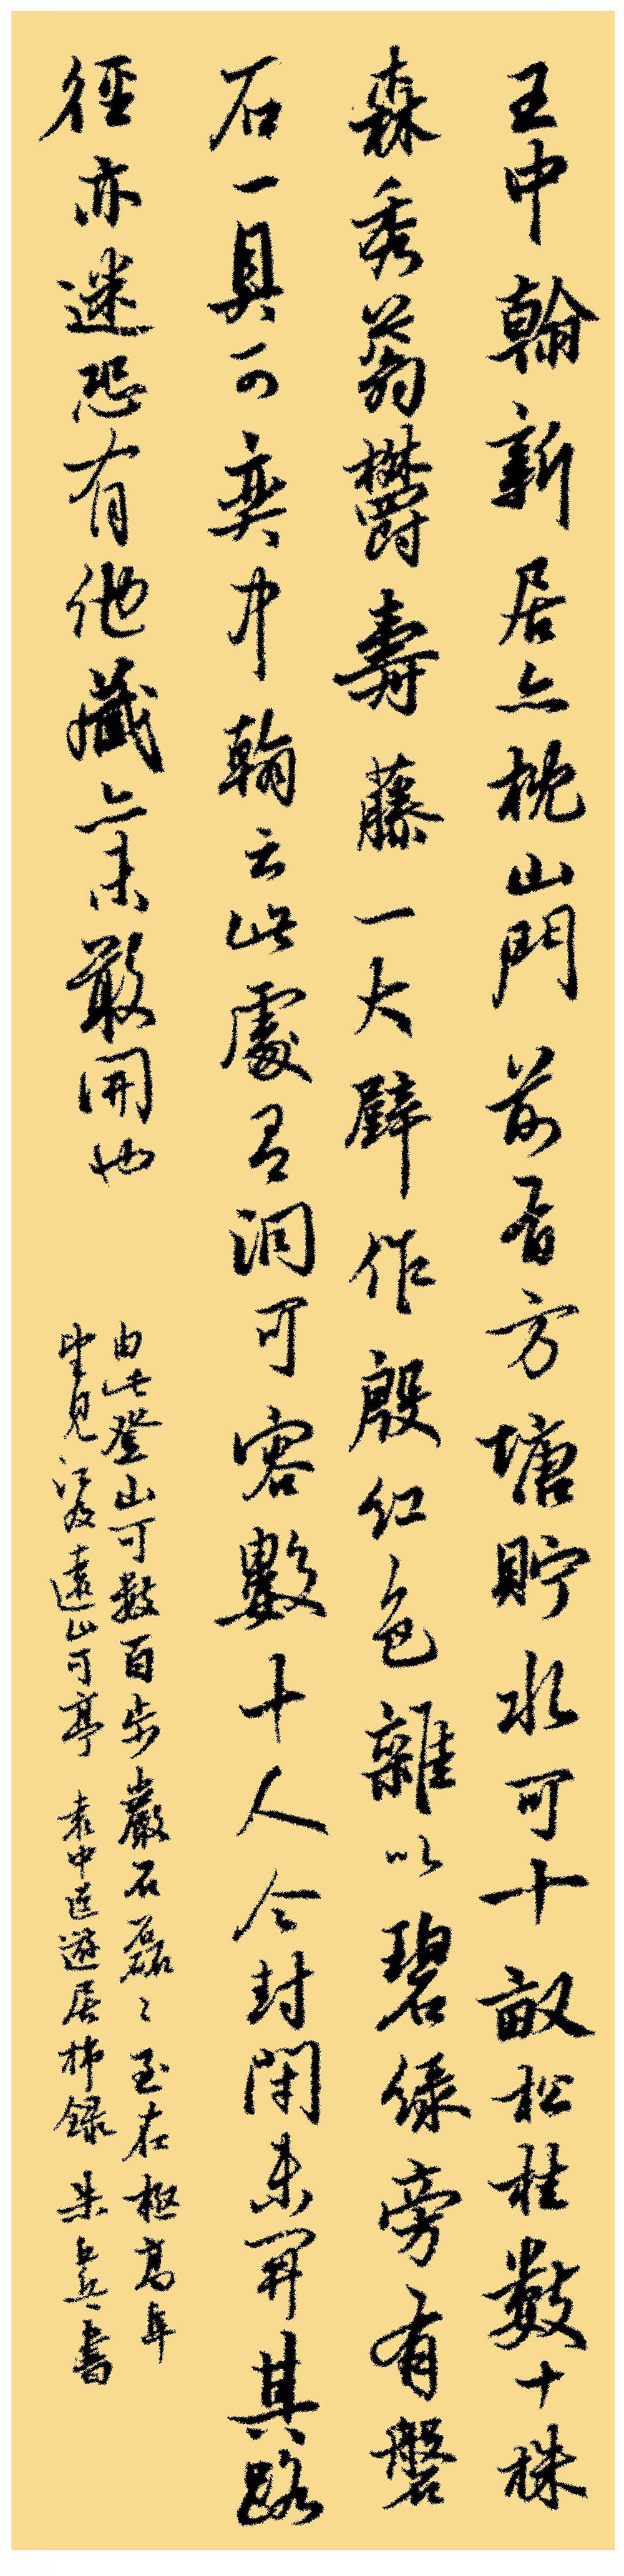 王中翰新居亦枕山門前有方塘貯水可十畝松桂數十株
森秀蓊欝壽藤一大壁作殷紅色雜以碧綠旁有磐
石一具可奕中翰云此處有洞可容數十人今封閉未開其路
徑亦迷恐有他藏亦未敢開也
由此登山可數百步巖石磊磊至在極高阜
望見江及遠山可亭 袁中道遊居柿錄 朱書